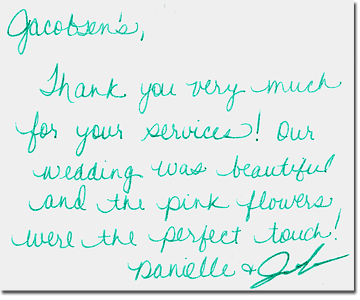 Jacobsen's,
Thank you very much
for your services! Our
wedding was beautiful
and the pink flowers
were the perfect touch!
Danielle &